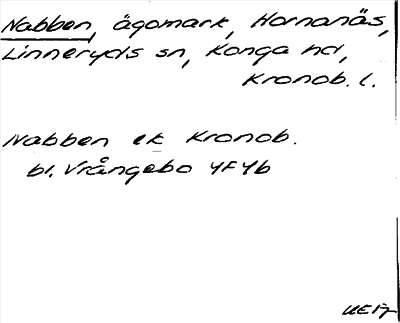 Nabben, ägomark, Hornanäs,
Linneryds sn, Konga hd,
Kronob. l.
Nabben ek Kronob.
bl. Vrångebo 4F4b